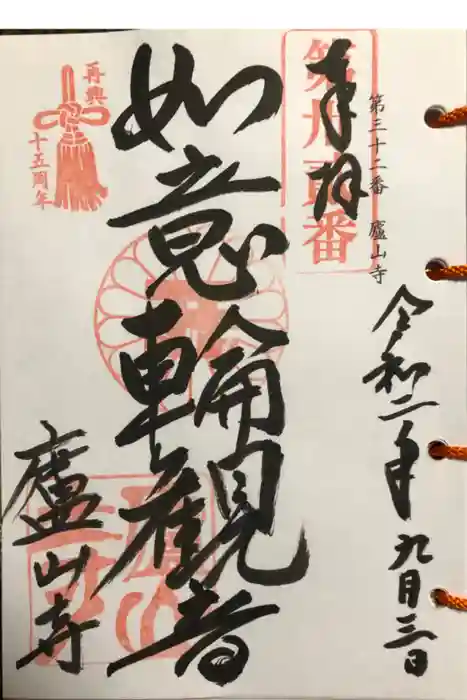 第三十二番 廬山寺
奉拝
第卅貳番
令和二年 九月三日
如意輪観音
廬山寺
再興
十五周年